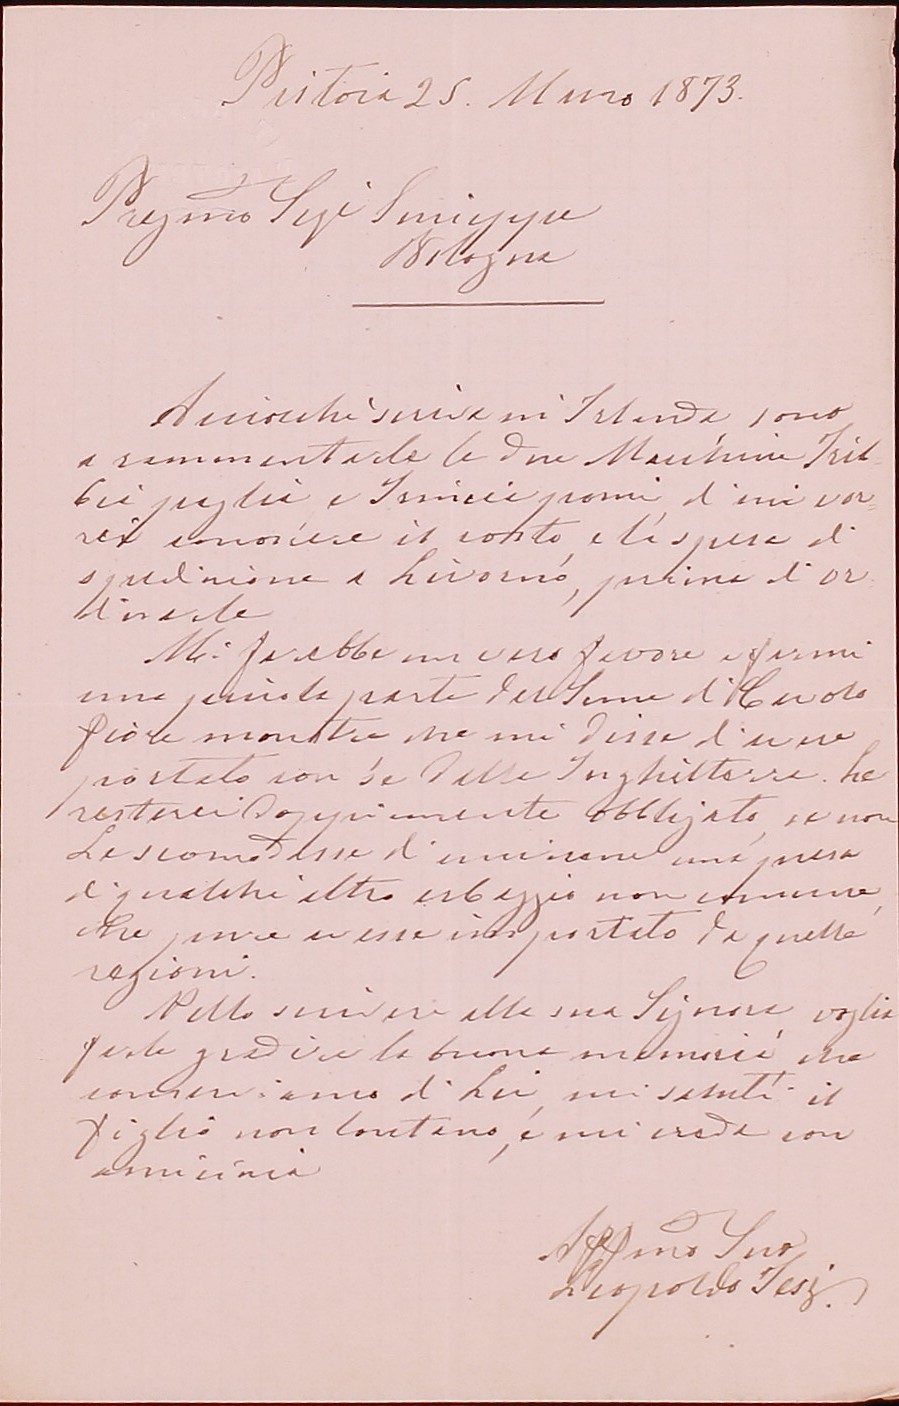 Pistoia 25. Marzo 1873.
Pregmo Sigr Giuseppe
Bologna
Acciocchè scriva in Irlanda sono
a rammentarle le due Macchine Trit=
cia paglia e Trincia pomi, d'cui vor=
rei conoscere il costo, e le spese di
spedizione a Livorno, prima d'or=
dinarle
Mi farebbe un vero favore a farmi
una piccola parte del Seme di Cavolo
fiore monstre che mi disse d'avere
portato con se dalla Inghilterra. Le
resterei doppiamente obbligato, se non
Le scomodasse d'unirsene una presa
d'qualche altro erbaggio non comune,
che pure avesse importato da quelle
regioni.
Nello scrivere alla sua Signora, voglia
farle gradire la buona memoria che
conserviamo di Lei, mi saluti il
figlio non lontano, e mi creda con
amicizia
Affmo Suo
Leopoldo Tesi.